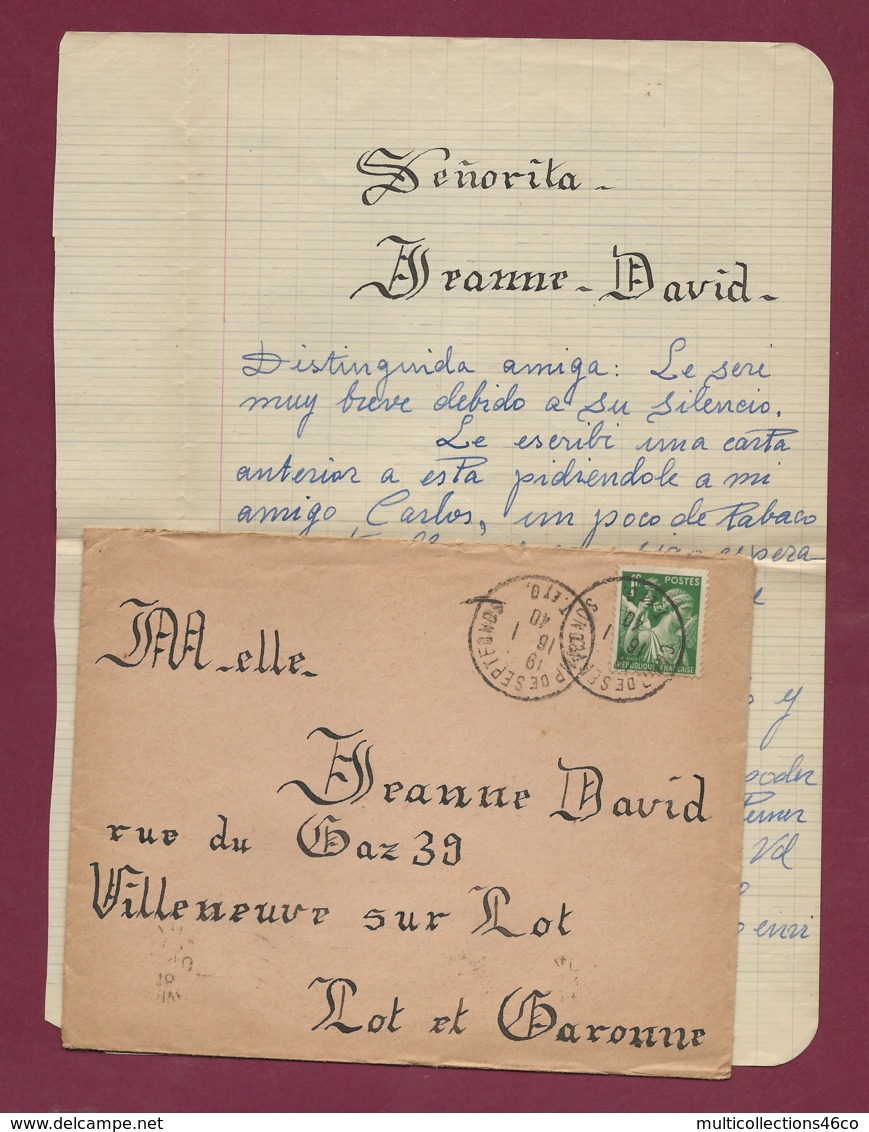 Señorita -
Jeanne - David -
Distinguida amiga: Le seré
muy breve debido a su silencio.
Le escribi una carta
anterior a esta pidiendole a mi
amigo "Carlos", un poco de tabaco
espera
y
poder
Vd
M -elle-
Jeanne David
rue du Gaz 39
Villeneuve sur Lot
Lot et Garonne
POSTES
RÉPUBLIQUE FRANÇAISE
CAMP DE SEPTFONDS
16 1
40
www.delcampe.net
multicollections46co